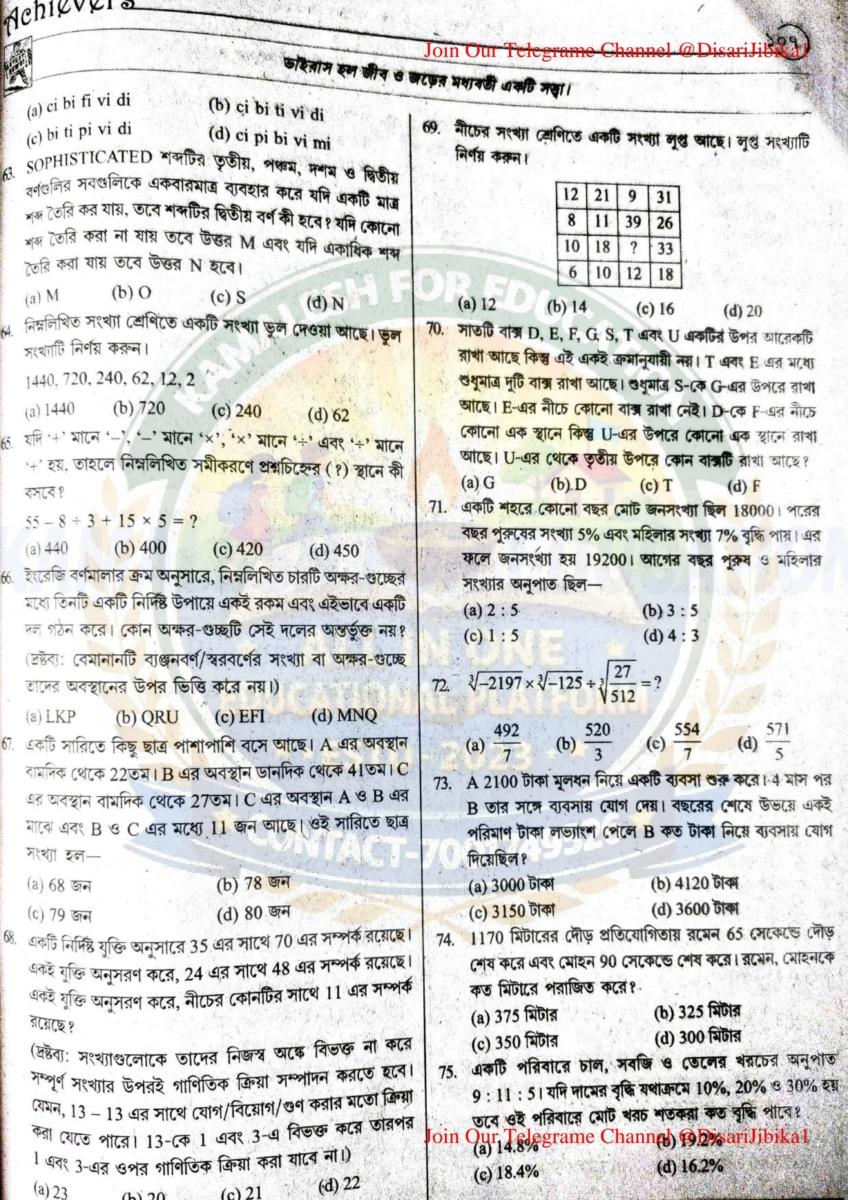 Achievers
২০৭
Join Our Telegrame Channel @DisariJibika1
ভাইরাস হল জীব ও জড়ের মধ্যবর্তী একটি সত্তা।
(a) ci bi fi vi di
(b) ci bi ti vi di
(c) bi ti pi vi di
(d) ci pi bi vi mi
63. SOPHISTICATED শব্দটির তৃতীয়, পঞ্চম, দশম ও দ্বিতীয়
বর্ণগুলির সবগুলিকে একবারমাত্র ব্যবহার করে যদি একটি মাত্র
শব্দ তৈরি কর যায়, তবে শব্দটির দ্বিতীয় বর্ণ কী হবে? যদি কোনো
শব্দ তৈরি করা না যায় তবে উত্তর M এবং যদি একাধিক শব্দ
তৈরি করা যায় তবে উত্তর N হবে।
(a) M
(b) O
(c) S
(d) N
64. নিম্নলিখিত সংখ্যা শ্রেণিতে একটি সংখ্যা ভুল দেওয়া আছে। ভুল
সংখ্যাটি নির্ণয় করুন।
1440, 720, 240, 62, 12, 2
(a) 1440
(b) 720
(c) 240
(d) 62
65. যদি '+' মানে '–', '–' মানে '×', '×' মানে '÷' এবং '÷' মানে
'+' হয়, তাহলে নিম্নলিখিত সমীকরণে প্রশ্নচিহ্নের (?) স্থানে কী
বসবে?
55 – 8 ÷ 3 + 15 × 5 = ?
(a) 440
(b) 400
(c) 420
(d) 450
66. ইংরেজি বর্ণমালার ক্রম অনুসারে, নিম্নলিখিত চারটি অক্ষর-গুচ্ছের
মধ্যে তিনটি একটি নির্দিষ্ট উপায়ে একই রকম এবং এইভাবে একটি
দল গঠন করে। কোন অক্ষর-গুচ্ছটি সেই দলের অন্তর্ভুক্ত নয়?
(দ্রষ্টব্য: বেমানানটি ব্যঞ্জনবর্ণ/স্বরবর্ণের সংখ্যা বা অক্ষর-গুচ্ছে
তাদের অবস্থানের উপর ভিত্তি করে নয়।)
(a) LKP
(b) QRU
(c) EFI
(d) MNQ
67. একটি সারিতে কিছু ছাত্র পাশাপাশি বসে আছে। A এর অবস্থান
বামদিক থেকে 22তম। B এর অবস্থান ডানদিক থেকে 41তম। C
এর অবস্থান বামদিক থেকে 27তম। C এর অবস্থান A ও B এর
মাঝে এবং B ও C এর মধ্যে 11 জন আছে। ওই সারিতে ছাত্র
সংখ্যা হল—
(a) 68 জন
(b) 78 জন
(c) 79 জন
(d) 80 জন
68. একটি নির্দিষ্ট যুক্তি অনুসারে 35 এর সাথে 70 এর সম্পর্ক রয়েছে।
একই যুক্তি অনুসরণ করে, 24 এর সাথে 48 এর সম্পর্ক রয়েছে।
একই যুক্তি অনুসরণ করে, নীচের কোনটির সাথে 11 এর সম্পর্ক
রয়েছে?
(দ্রষ্টব্য: সংখ্যাগুলোকে তাদের নিজস্ব অঙ্কে বিভক্ত না করে
সম্পূর্ণ সংখ্যার উপরই গাণিতিক ক্রিয়া সম্পাদন করতে হবে।
যেমন, 13 – 13 এর সাথে যোগ/বিয়োগ/গুণ করার মতো ক্রিয়া
করা যেতে পারে। 13-কে 1 এবং 3-এ বিভক্ত করে তারপর
1 এবং 3-এর ওপর গাণিতিক ক্রিয়া করা যাবে না।)
(a) 23
(b) 20
(c) 21
(d) 22
69. নীচের সংখ্যা শ্রেণিতে একটি সংখ্যা লুপ্ত আছে। লুপ্ত সংখ্যাটি
নির্ণয় করুন।
12 21 9 31
8 11 39 26
10 18 ? 33
6 10 12 18
(a) 12
(b) 14
(c) 16
(d) 20
70. সাতটি বাক্স D, E, F, G, S, T এবং U একটির উপর আরেকটি
রাখা আছে কিন্তু এই একই ক্রমানুযায়ী নয়। T এবং E এর মধ্যে
শুধুমাত্র দুটি বাক্স রাখা আছে। শুধুমাত্র S-কে G-এর উপরে রাখা
আছে। E-এর নীচে কোনো বাক্স রাখা নেই। D-কে F-এর নীচে
কোনো এক স্থানে কিন্তু U-এর উপরে কোনো এক স্থানে রাখা
আছে। U-এর থেকে তৃতীয় উপরে কোন বাক্সটি রাখা আছে?
(a) G
(b) D
(c) T
(d) F
71. একটি শহরে কোনো বছর মোট জনসংখ্যা ছিল 18000। পরের
বছর পুরুষের সংখ্যা 5% এবং মহিলার সংখ্যা 7% বৃদ্ধি পায়। এর
ফলে জনসংখ্যা হয় 19200। আগের বছর পুরুষ ও মহিলার
সংখ্যার অনুপাত ছিল—
(a) 2 : 5
(b) 3 : 5
(c) 1 : 5
(d) 4 : 3
72. ∛–2197 × ∛–125 ÷ ∛27/512 = ?
(a) 492/7
(b) 520/3
(c) 554/7
(d) 571/5
73. A 2100 টাকা মূলধন নিয়ে একটি ব্যবসা শুরু করে। 4 মাস পর
B তার সঙ্গে ব্যবসায় যোগ দেয়। বছরের শেষে উভয়ে একই
পরিমাণ টাকা লভ্যাংশ পেলে B কত টাকা নিয়ে ব্যবসায় যোগ
দিয়েছিল?
(a) 3000 টাকা
(b) 4120 টাকা
(c) 3150 টাকা
(d) 3600 টাকা
74. 1170 মিটারের দৌড় প্রতিযোগিতায় রমেন 65 সেকেন্ডে দৌড়
শেষ করে এবং মোহন 90 সেকেন্ডে শেষ করে। রমেন, মোহনকে
কত মিটারে পরাজিত করে?
(a) 375 মিটার
(b) 325 মিটার
(c) 350 মিটার
(d) 300 মিটার
75. একটি পরিবারে চাল, সবজি ও তেলের খরচের অনুপাত
9 : 11 : 5। যদি দামের বৃদ্ধি যথাক্রমে 10%, 20% ও 30% হয়
তবে ওই পরিবারে মোট খরচ শতকরা কত বৃদ্ধি পাবে?
Join Our Telegrame Channel @DisariJibika1
(a) 14.8%
(b) 19.2%
(c) 18.4%
(d) 16.2%
KAMALESH FOR EDUCATION
ALL IN ONE
EDUCATIONAL PLATFORM
2023